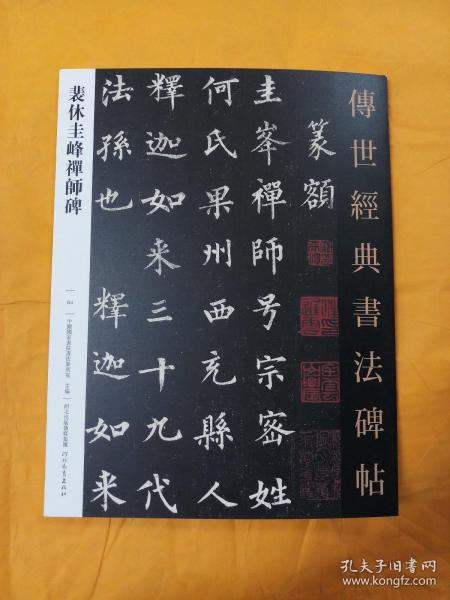 傳世經典書法碑帖
篆額
圭峯禪師号宗密姓
何氏果州西充縣人
釋迦如来三十九代
法孫也 釋迦如来
裴休圭峰禪師碑
主編
河北出版傳媒集團
河北教育出版社
孔夫子旧书网
www.kongfz.com